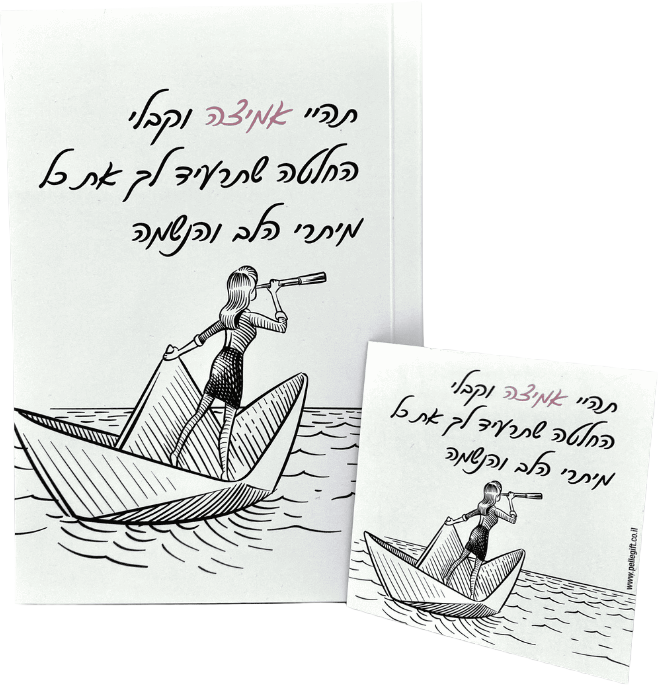 תהיי אמיצה וקבלי
החלטה שתרעיד לך את כל
מיתרי הלב והנשמה
תהיי אמיצה וקבלי
החלטה שתרעיד לך את כל
מיתרי הלב והנשמה
www.pellegift.co.il